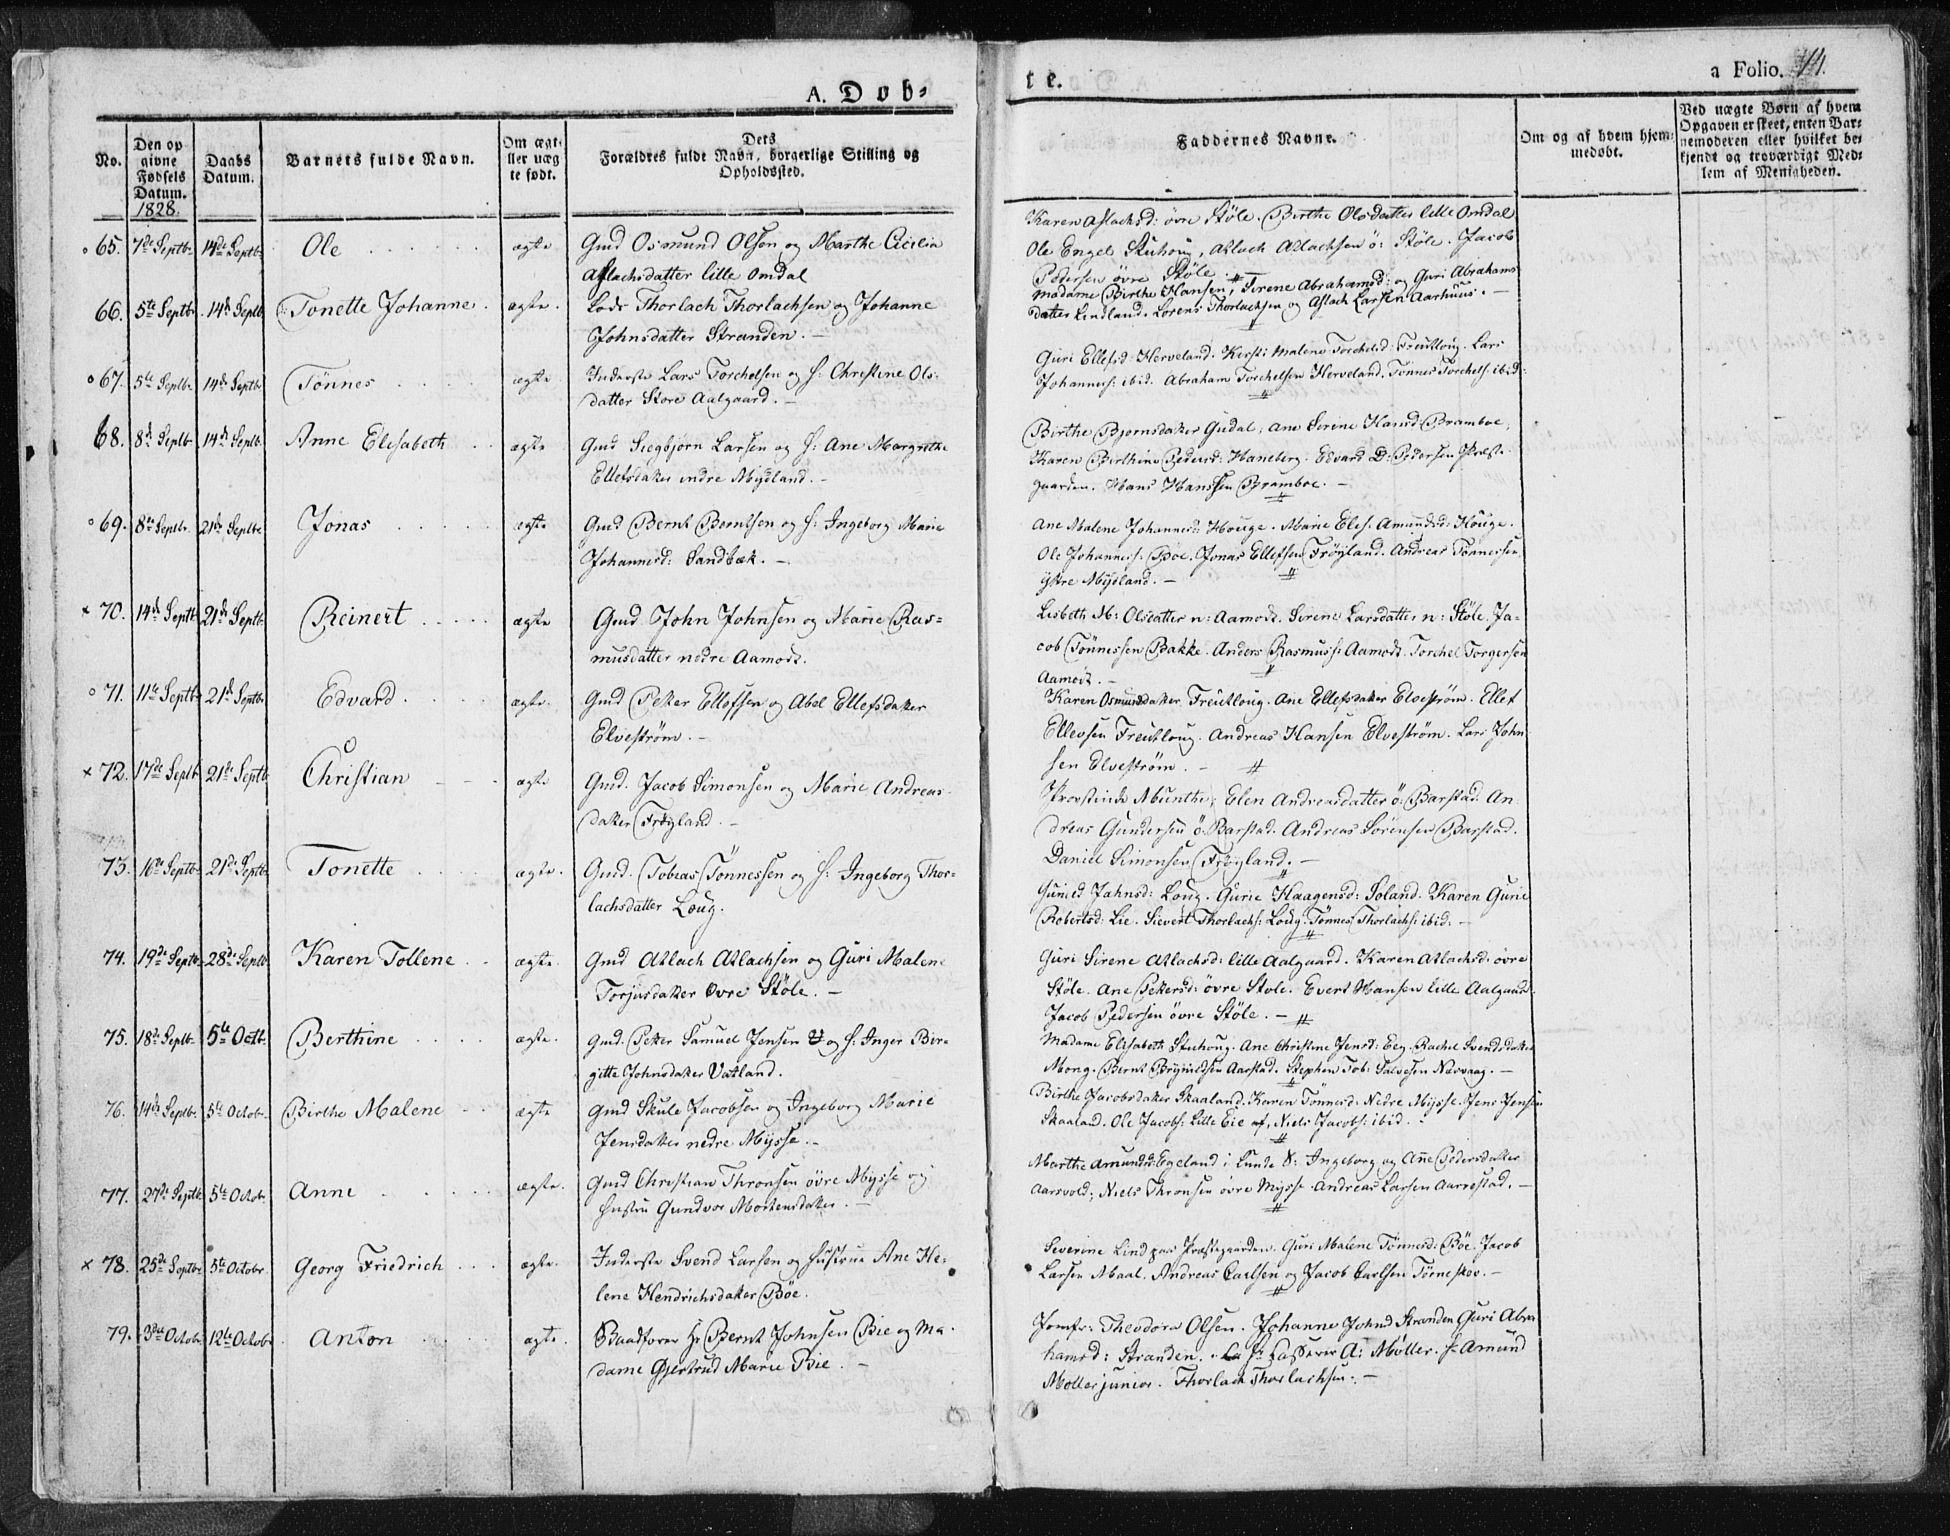 A. Døb-
te.
a Folio. 11.
No.
Den op
givne
Fødsels
Datum.
1828.
Daabs
Datum.
Barnets fulde Navn.
Om ægt-
ller uæg
te født.
Dets
Forældres fulde Navn, borgerlige Stilling og
Opholdssted.
Faddernes Navne.
Om og af hvem hjem-
medøbt.
Ved uægte Børn af hvem
Opgaven er skeet, enten Bar-
nemoderen eller hvilket be-
kjendt og troværdigt Med-
lem af Menigheden.
65. 7de Septb. 14de Septb. Ole ægte Gmd Osmund Olsen og Marthe Cicilia
Aslachsdatter lille Omdal
Karen Aslachsd: øvre Støle. Birthe Olsdatter lille Omdal
Ole Engel Stuhoug, Atlach Atlachsen ø: Støle. Jacob
Pedersen øvre Støle.
66. 5te Septb. 14de Septb. Tonette Johanne ægte. Lods Thorlach Thorlachsen og Johanne
Johnsdatter Stranden.
Madame Birthe Hansen, Serene Abrahamsd: og Guri Abrahams
datter Lindland. Lorens Thorlachsen og Aslach Larsen Aarhuus.
67. 5te Septb. 14de Septb. Tönnes ægte Inderste Lars Torchelsen og h: Christine Ols-
datter Store Aalgaard.
Guri Ellefsd: Herveland. Kirsti Malene Torchelsd: Freutloug. Lars
Johannes: ibid. Abraham Torchelsen Herveland. Tönnes Torchels: ibid:
68. 8de Septb. 14de Septb. Anne Elisabeth ægte Gmd Siegbjørn Larsen og h: Ane Margrethe
Ellefsdatter indre Mydland.
Birthe Bjornsdatter Gudal, Ane Sirene Hansd Bramboe,
Karen Birthine Pedersd: Haneberg. Edvard D: Pedersen Præste-
gaarden. Hans Hanssen Bramboe.
69. 8de Septb. 21de Septbr. Jonas ægte Gmd Bernt Berntsen og h: Ingeborg Marie
Johannesd: Sandbæk.
Ane Malene Johannesd: Houge. Marie Elis. Amundsd: Houge.
Ole Johannes: Böe. Jonas Ellefsen Fröyland. Andreas Tönnesen
ystre Mydland.
70. 14de Septb. 21de Septb. Reinert ægte Gmd. John Johnsen og Marie Ras-
musdatter nedre Aamodt.
Lisbeth M: Olsdatter n: Aamodt. Sirene Larsdatter n: Støle. Ja-
cob Tönnessen Bakke. Anders Rasmuss: Aamodt. Torchel Torgersen
Aamodt.
71. 11te Septb. 21de Septb. Edvard ægte. Gmd Petter Ellefsen og Abel Ellefsdatter
Elvestrøm.
Karen Osmundsdatter Freutloug. Ane Ellefsdatter Elvestrøm. Ellef
Ellevsen Freutloug. Andreas Hansen Elvestrøm. Lars John
sen Elvestrøm.
72. 17de Septb. 21de Septb. Christian ægte Gmd. Jacob Simonsen og Marie Andreas-
datter Fröyland.
Provstinde Munthe, Elen Andreasdatter ö: Barstad. An-
dreas Gundersen ö: Barstad. Andreas Sörensen Barstad.
Daniel Simonsen Fröyland.
73. 16de Septb. 21de Septb. Tonette ægte. Gmd. Tobias Tönnessen og h: Ingeborg Thor-
lachsdatter Loug.
Jahnsd: Loug. Gurie Haagensd: Soland. Karen Gurie
Robertsd: Lie. Sievert Thorlachs: Loug. Tönnes Thorlachs: ibid:
74. 19de Septb. 28de Septb. Karen Tollene ægte. Gmd Atlach Atlachsen og Guri Malene
Torjusdatter Øvre Støle.
Guri Sirene Atlachsd: lille Aalgaard. Karen Atlachsd: øvre
Støle. Ane Pettersd: øvre Stole. Evert Hansen lille Aalgaard.
Jacob Pedersen øvre Støle.
75. 18de Septb. 5te Octb. Berthine ægte. Gmd. Petter Samuel Jensen og h: Inger Bir-
gitte Johnsdatter Vatland.
Madame Elisabeth Stuhoug. Ane Christine Jensd: Eeg. Rachel Svendsdatter
Mong. Bernt Brynildsen Aarstad. Stephen Tob: Salvesen Nesvaag.
76. 14de Septb. 5te Octob. Birthe Malene ægte Gmd Skule Jacobsen og Ingeborg Marie
Jensdatter nedre Mysse.
Birthe Jacobsdatter Skaaland. Karen Tönnesd: Nedre Mysse. Jens Jensen
Skaaland. Ole Jacobs: Lille Eie, Niels Jacobs: ibid.
77. 27de Septb. 5te Octob. Anne ægte. Gmd Christian Thronsen øvre Mysse og
hustru Gundvor Mortensdatter.
Marthe Amundsd: Egeland i Lunde S: Ingeborg og Ane Pedersdatter
Aarsvold, Niels Thronsen øvre Mysse. Andreas Larsen Aarrestad.
78. 25de Septbr 5te Octobr. Georg Friedrich ægte. Inderste Svend Larsen og hustrue Ane He-
lene Hendrichsdatter Böe.
Severine Lind paa Præstegaarden. Guri Malene Tönnesd: Böe. Jacob
Larsen Maal. Andreas Carlsen og Jacob Carlsen Törneskov.
79. 3die Octob. 12te Octob. Anton ægte. Baadfører Hr Bernt Johnsen Bie og Ma-
dame Gjertrud Marie Bie.
Jomfr: Theodora Olsen. Johanne Johnsd Stranden Guri Abra
hamsd: Stranden. A: Møller. Hr Amund
Moller junior. Thorlach Thorlachsen.